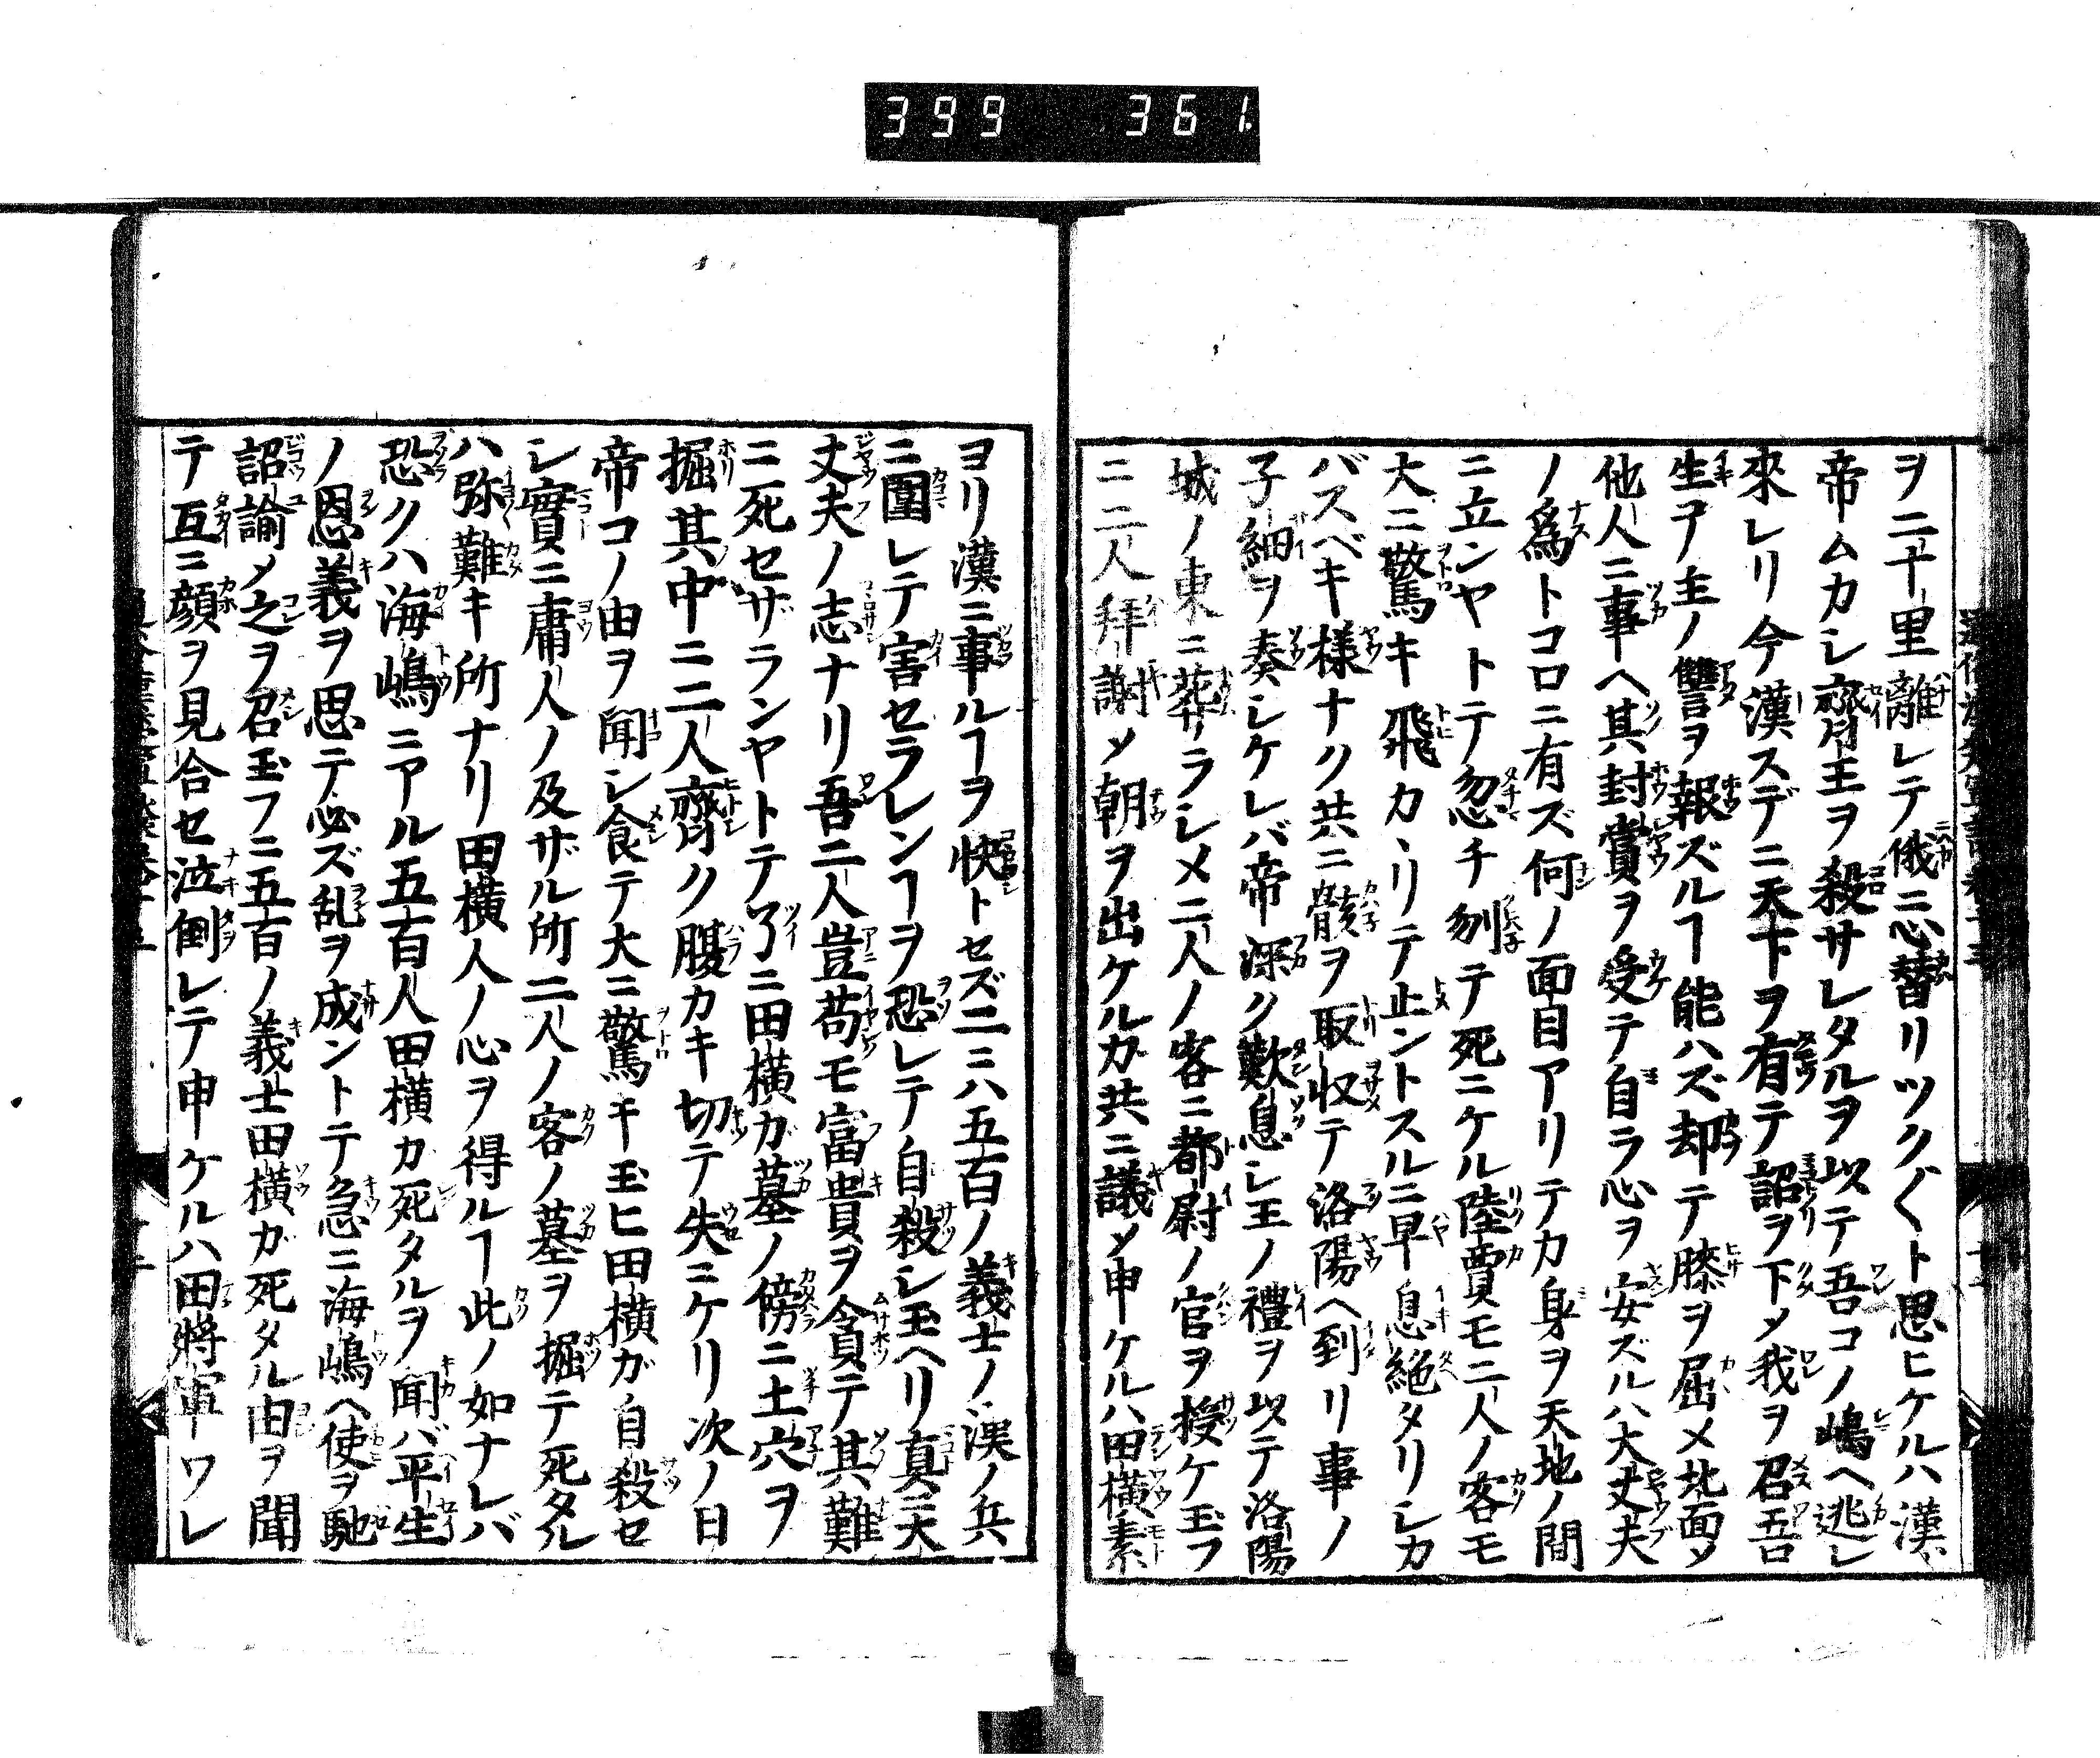 399 361
ヲ二十里離レテ俄ニ心替リツク〲ト思ヒケルハ漢
帝ムカシ齊王ヲ殺サレタルヲ以テ吾コノ嶋ヘ逃レ
來レリ今漢スデニ天下ヲ有テ詔ヲ下メ我ヲ召吾
生テ主ノ讐ヲ報ズルヿ能ハズ却テ膝ヲ屈メ北面メ
他人ニ事ヘ其封賞ヲ受テ自ラ心ヲ安ズルハ大丈夫
ノ爲トコロニ有ズ何ノ面目アリテカ身ヲ天地ノ間
ニ立ンヤトテ忽チ刎テ死ニケル陸賈モ二人ノ客モ
大ニ驚キ飛カヽリテ止ントスルニ早息絶タリシカ
バスベキ様ナク共ニ骸ヲ取収テ洛陽ヘ到リ事ノ
子細ヲ奏シケレバ帝深ク歎息シ王ノ禮ヲ以テ洛陽
城ノ東ニ葬ラシメ二人ノ客ニ都尉ノ官ヲ授ケ玉フ
ニ二人拜謝メ朝ヲ出ケルガ共ニ議メ申ケルハ田横素
ヨリ漢ニ事ルヿヲ快トセズ二ニハ五百ノ義士ノ漢ノ兵
ニ圍レテ害セラレンヿヲ恐レテ自殺シ玉ヘリ真ニ大
丈夫ノ志ナリ吾二人豈苟モ富貴ヲ貪テ其難
ニ死セザランヤトテ了ニ田横ガ墓ノ傍ニ土穴ヲ
掘其中ニ二人齊ク腹カキ切テ失ニケリ次ノ日
帝コノ由ヲ聞シ食テ大ニ驚キ玉ヒ田横ガ自殺セ
シ實ニ庸人ノ及ザル所二人ノ客ノ墓ヲ掘テ死タル
ハ弥難キ所ナリ田横人ノ心ヲ得ルヿ此ノ如ナレバ
恐クハ海嶋ニアル五百人田横カ死タルヲ聞バ平生
ノ恩義ヲ思テ必ズ乱ヲ成ントテ急ニ海嶋ヘ使ヲ馳
詔諭メ之ヲ召玉フニ五百ノ義士田横ガ死タル由ヲ聞
テ互ニ顔ヲ見合セ泣倒レテ申ケルハ田將軍ワレ